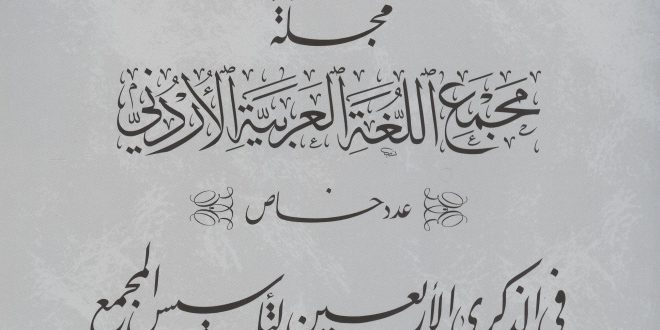 مجلة
مَجْمَع اللُّغَة العَرَبيَّة الأُرْدُنيّ
عدد خاص
في الذكرى الأربعين لتأسيس المجمع